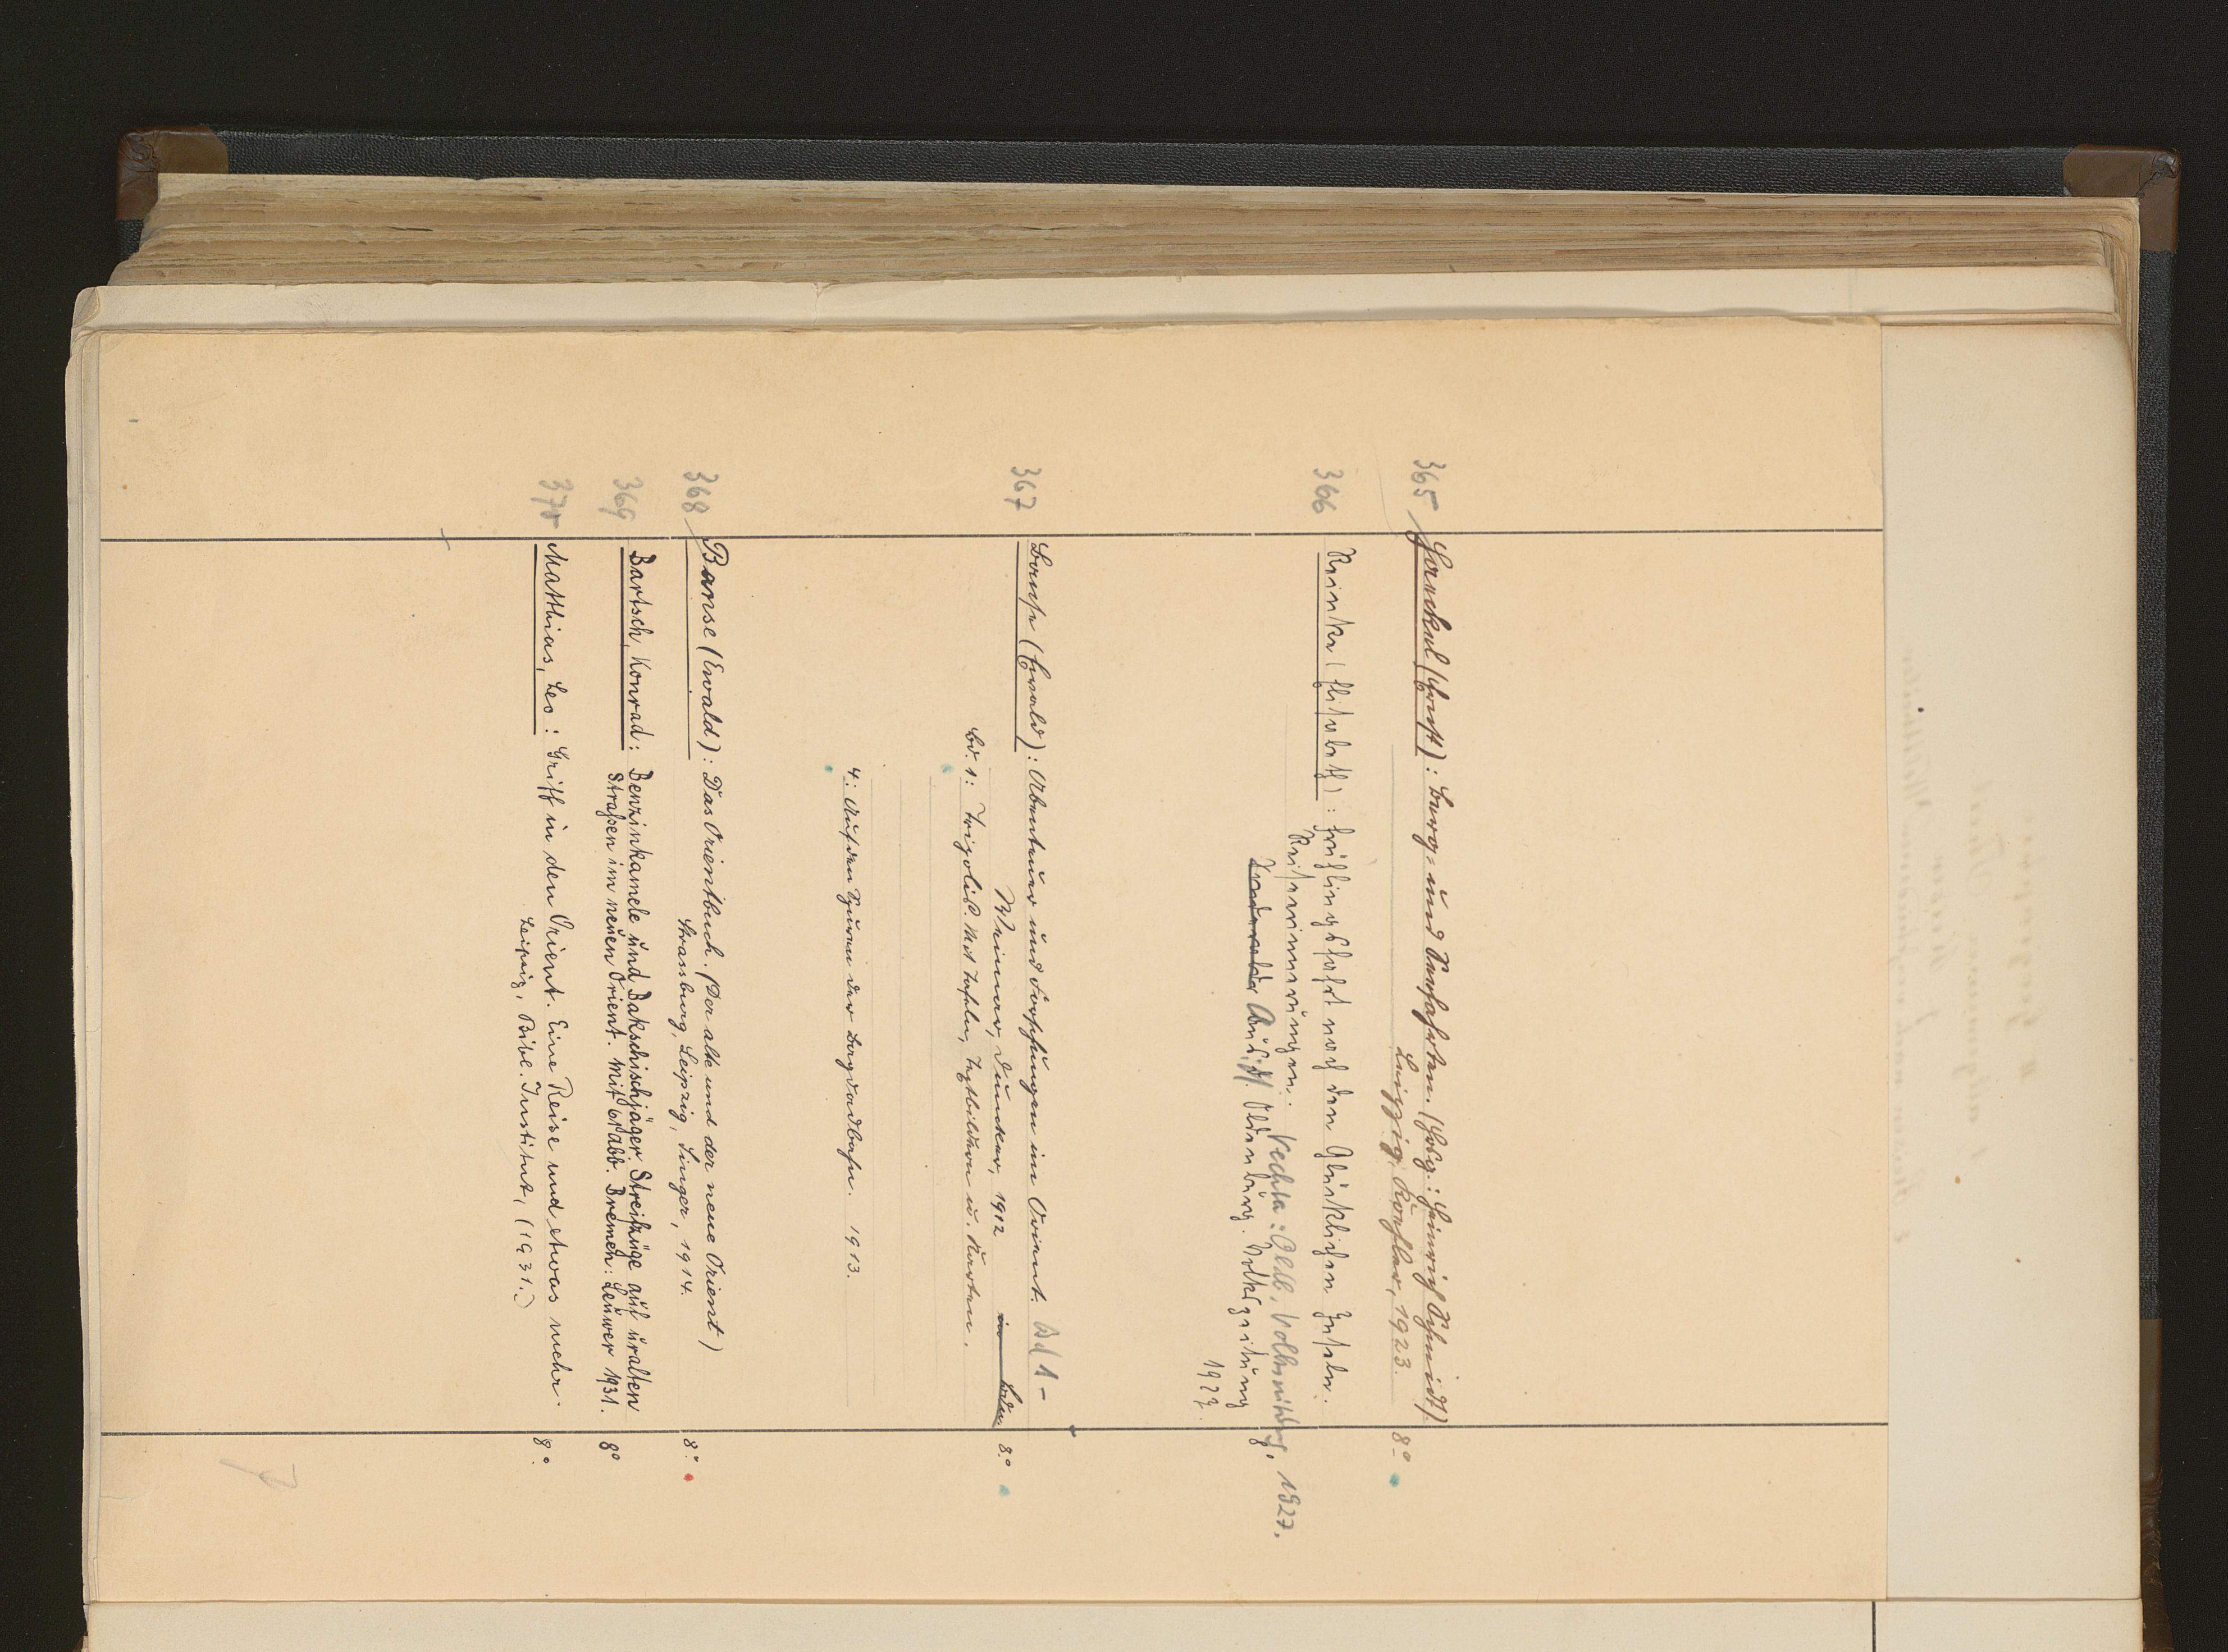 365 Haeckel (Ernst): Berg- und Seefahrten. (Hrsg.: Heinrich Schmidt)
Leipzig, Koehler, 1923. 8°
366 Reinke (Elisabeth): Frühlingsfahrt nach den Glücklichen Inseln.
Reiseerinnerungen. Vechta: Oldb. Volkszeitung, 1927.
Oldenburg. Volkszeitung
1927.
367 Banse (Ewald): Abenteuer und Forschungen im Orient. Bd 1-
Weimar, Duncker, 1912 8°
Bd. 1: Tripolis. Mit Tafeln, Textbildern u. Karten.
4: Auf den Spuren der Bagdadbahn. 1913.
368 Banse (Ewald): Das Orientbuch. (Der alte und der neue Orient)
Strassburg, Leipzig, Singer, 1914. 8°
369 Bartsch, Konrad: Benzinkamele und Bakschischjäger. Streifzüge auf uralten
Straßen im neuen Orient. Mit 61 Abb. Bremen: Leuwer 1931. 8°
370 Matthias, Leo: Griff in den Orient. Eine Reise und etwas mehr.
Leipzig, Bibl. Institut, (1931.) 8°